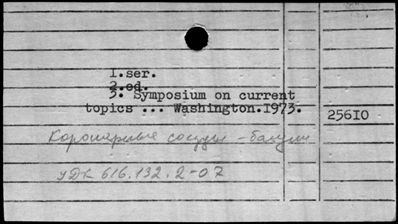 1.ser.
2.ed.
3. Symposium on current
topics ... Washington.I973.
256I0
Коронарные сосуды -
УДК 616.132.2-07